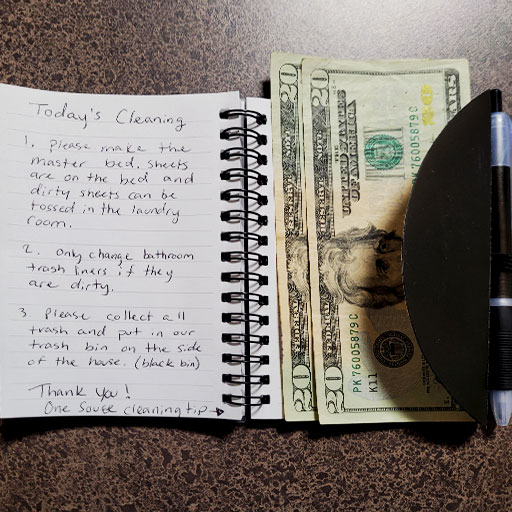 Today's Cleaning
1. Please make the
master bed. sheets
are on the bed and
dirty sheets can be
tossed in the laundry
room.
2. Only change bathroom
trash liners if they
are dirty.
3. Please collect all
trash and put in our
trash bin on the side
of the house. (black bin)
Thank You!
One source cleaning tip →
20
20
UNITED STATES
OF AMERICA
PK 76005879 C
PK 76005879 C
K11
20
20